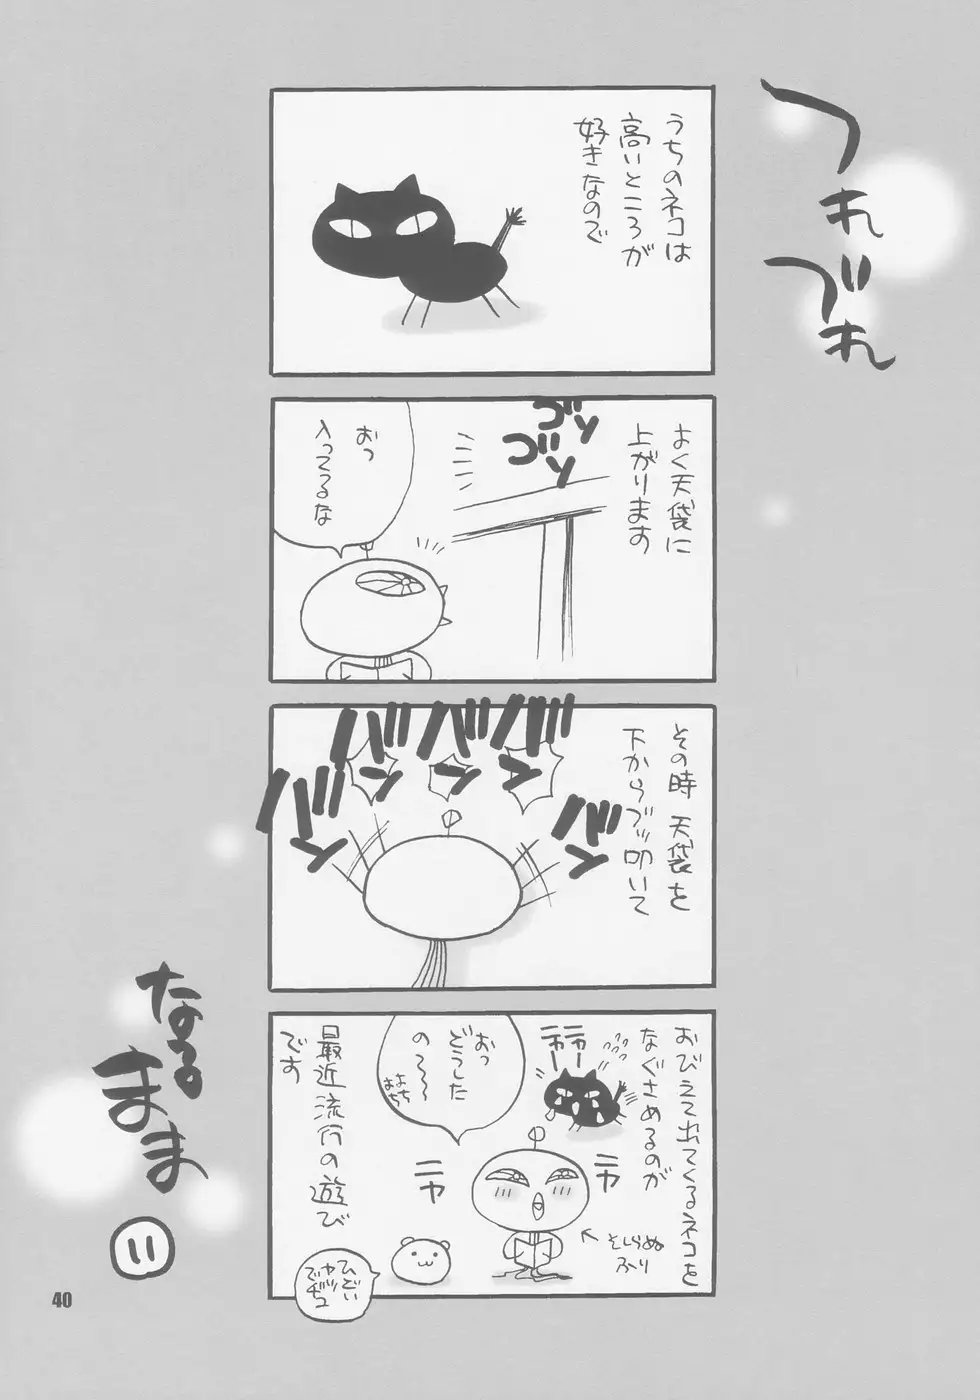 つれづれ
なるまま
11
うちのネコは
高いところが
好きなので
よく天袋に
上がります
ゴソ
ゴソ
おっ
入ってるな
その時 天袋を
下からブッ叩いて
バン
バン
バン
バン
バン
おびえて出てくるネコを
なぐさめるのが
最近流行の遊び
です
ニャー
ニャー
おっ
どうした
の〜〜
よちよち
ニヤ
ニヤ
そしらぬ
ふり
ひどい
ヤツ
でヂュ
40